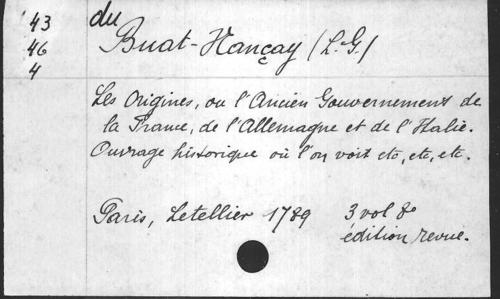 43
46
4
du
Buat-Nançay (L.G.)
Les Origines, ou l'Ancien Gouvernement de
la France, de l'Allemagne et de l'Italie.
Ouvrage historique où l'on voit etc, etc, etc.
Paris, Letellier 1789 3 vol 8o
édition revue.